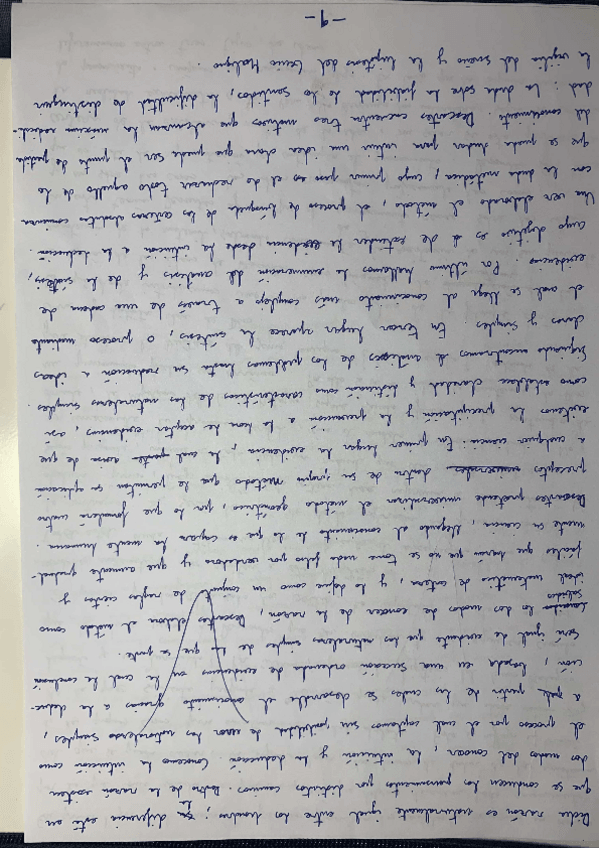 Dicha razón es naturalmente igual entre los hombres; la diferencia está en
que conducen los pensamientos por distintos caminos. Dentro de la razón existen
dos modos del conocer, la intuición y la deducción. Conocemos la intuición como
el proceso por el cual captamos sin posibilidad de error las naturalezas simples,
a partir de las cuales se desarrolla el conocimiento gracias a la deduc-
ción, basada en una sucesión ordenada de evidencias en la cual la conclusión
será igual de evidente que las naturalezas simples de las que parte.
los dos modos de conocer de la razón, Descartes elabora el método como
salida
ideal matemático de certeza, y lo define como un conjunto de reglas ciertas y
fáciles que harán que no se tome nada falso por verdadero y que aumente gradual-
mente su ciencia, llegando al conocimiento de lo que es capaz la mente humana.
Descartes pretende universalizar el método geométrico, por lo que formulará cuatro
preceptos dentro de su propio método que le permitan su aplicación
a cualquier ciencia. En primer lugar la evidencia, la cual trata de que
evitemos la precipitación y la prevención a la hora de aceptar evidencias, así
como establece claridad y distinción como características de las naturalezas simples.
Siguiendo encontramos el análisis de los problemas hasta su reducción a ideas
claras y simples. En tercer lugar aparece la síntesis, o proceso mediante
el cual se llega al conocimiento más complejo a través de una cadena de
evidencias. Por último hallamos la enumeración del análisis y de la síntesis,
cuyo objetivo es el de extender la evidencia desde la intuición a la deducción.
Una vez elaborado el método, el proceso de búsqueda de las certezas absolutas comienza
con la duda metódica, cuyo primer paso es el de rechazar todo aquello de lo
que se pueda dudar para intuir una idea clara que pueda ser el punto de partida
del conocimiento. Descartes encuentra tres motivos que alcanzan la máxima radicali-
dad: la duda sobre la fiabilidad de los sentidos, la dificultad de distinguir
la vigilia del sueño y la hipótesis del Genio Maligno.
-1-